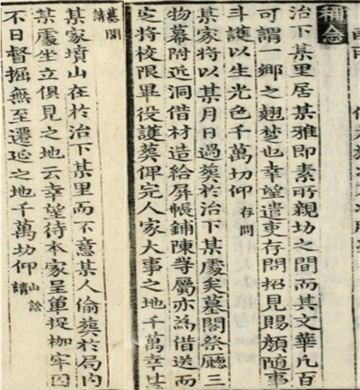 補念
治下某里居某雅即素所親切之間而其文華凡百
可謂一鄕之翹楚也幸望遣吏存問招見賜顔隨事
斗護以生光色千萬切仰 存問
某家將以某月日過葬於治下某處矣墓閣祭廳三
物幕附近洞借材造給屛帳鋪陳等屬亦爲借送而
定將校限畢役護葬俾完人家大事之地千萬幸甚
墓閣請
某家墳山在於治下某里而不意某人偸葬於局內
某處坐立俱見之地云幸望待本家呈單捉枷牢囚
不日督掘無至遷延之地千萬切仰 山訟請